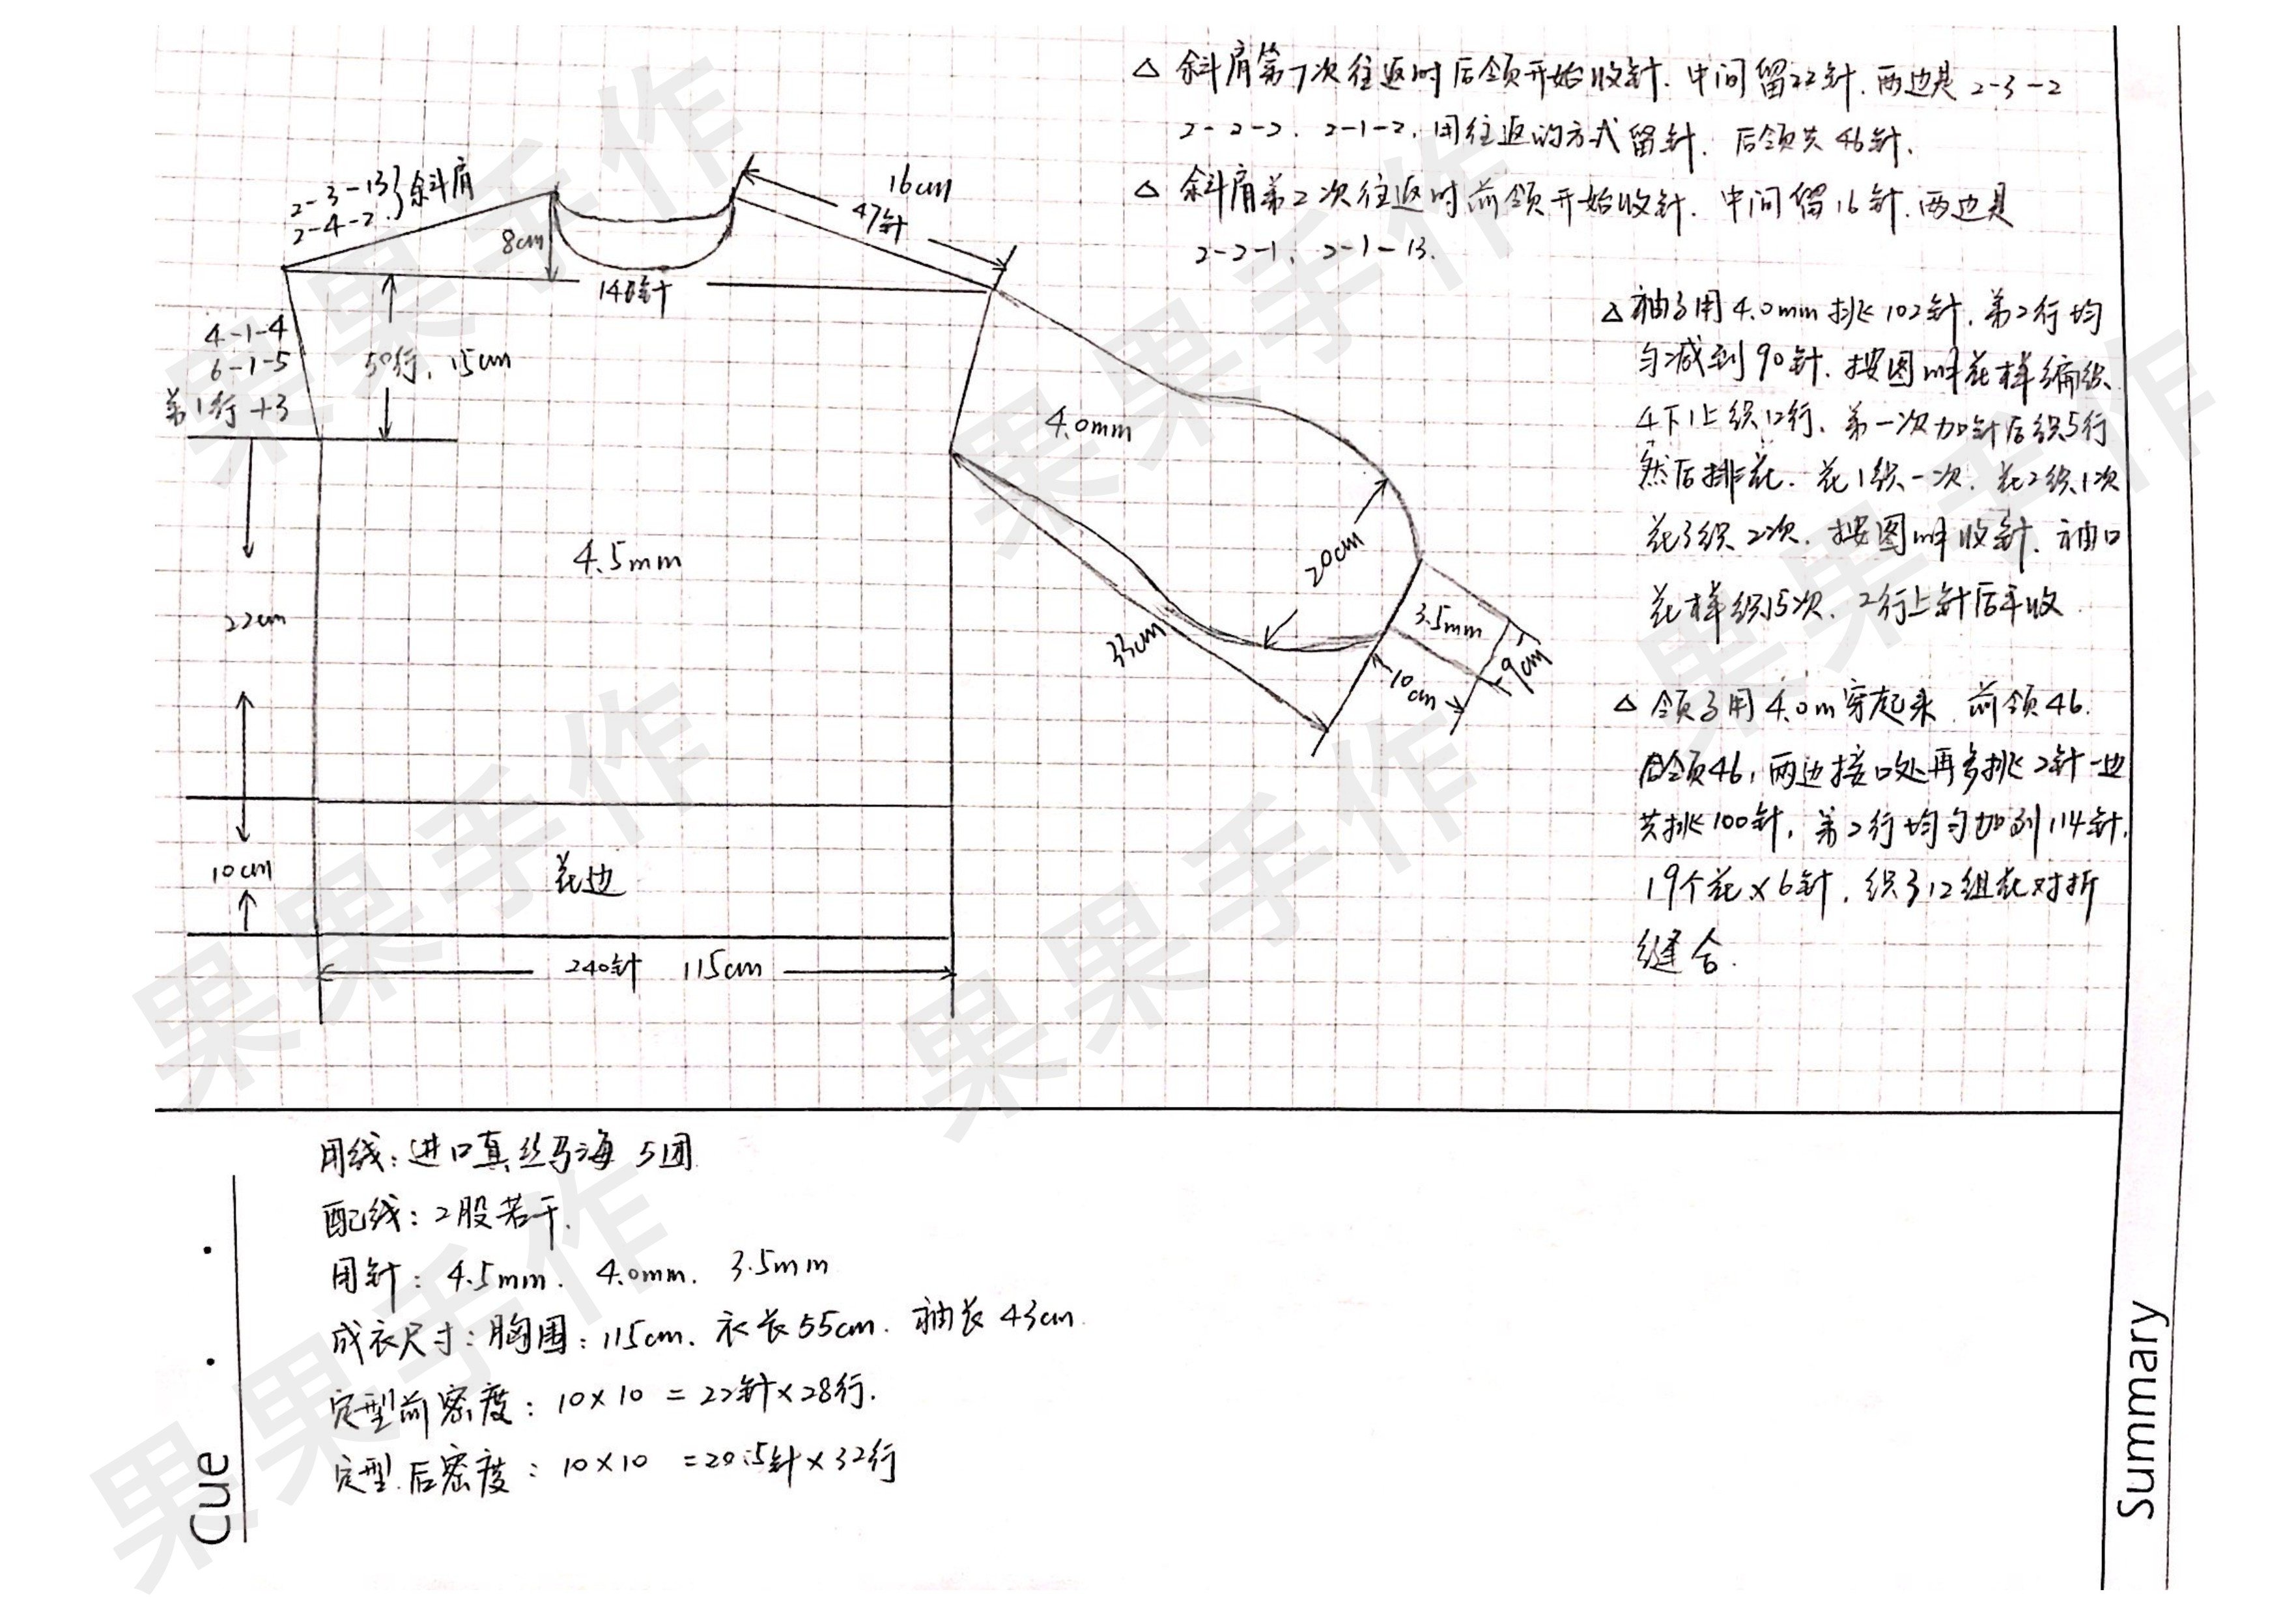 △ 斜肩第7次往返时后领开始收针.中间留22针.两边是2-3-2
2-2-2. 2-1-2, 用往返的方式留针. 后领共46针.
△ 斜肩第2次往返时前领开始收针. 中间留16针.两边是
2-2-1. 2-1-13.
2-3-13}斜肩
2-4-2
16cm
47针
8cm
140针
4-1-4
6-1-5
第1行+3
50行, 15cm
4.0mm
4.5mm
22cm
20cm
33cm
3.5mm
9cm
10cm
10cm
花边
240针 115cm
△ 袖子用4.0mm挑102针.第2行均
匀减到90针.按图解花样编织
4下1上织12行.第一次加针后织5行
然后排花.花1织一次.花2织1次
花3织2次.按图解收针.袖口
花样织15次.2行上针后平收.
△ 领子用4.0m穿起来 前领46.
后领46,两边接口处再多挑2针一边
共挑100针,第2行均匀加到114针,
19个花×6针.织了12组花对折
缝合.
用线:进口真丝马海 5团
配线:2股若干.
用针:4.5mm. 4.0mm. 3.5mm
成衣尺寸:胸围:115cm. 衣长55cm. 袖长43cm.
定型前密度:10×10 = 22针×28行.
定型后密度:10×10 =20.5针×32行
Cue
Summary
果果手作
果果手作
果果手作
果果手作
果果手作
果果手作